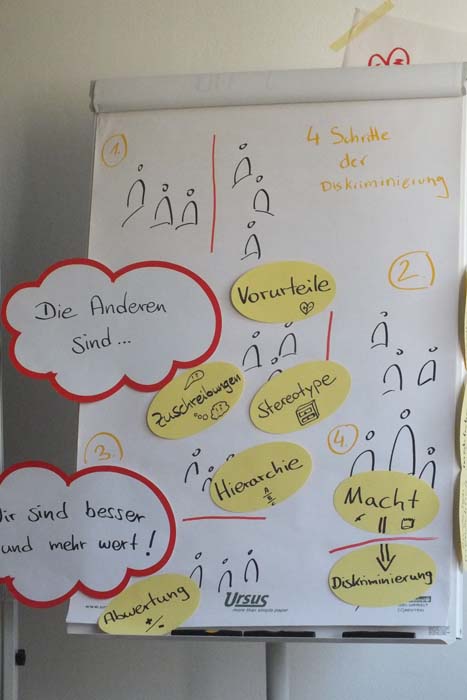 1.
4 Schritte
der
Diskriminierung
2.
Die Anderen
sind...
Vorurteile
Zuschreibungen
Stereotype
3.
Hierarchie
4.
Wir sind besser
und mehr wert!
Macht
Diskriminierung
Abwertung
+/-
Ursus
more than simple paper